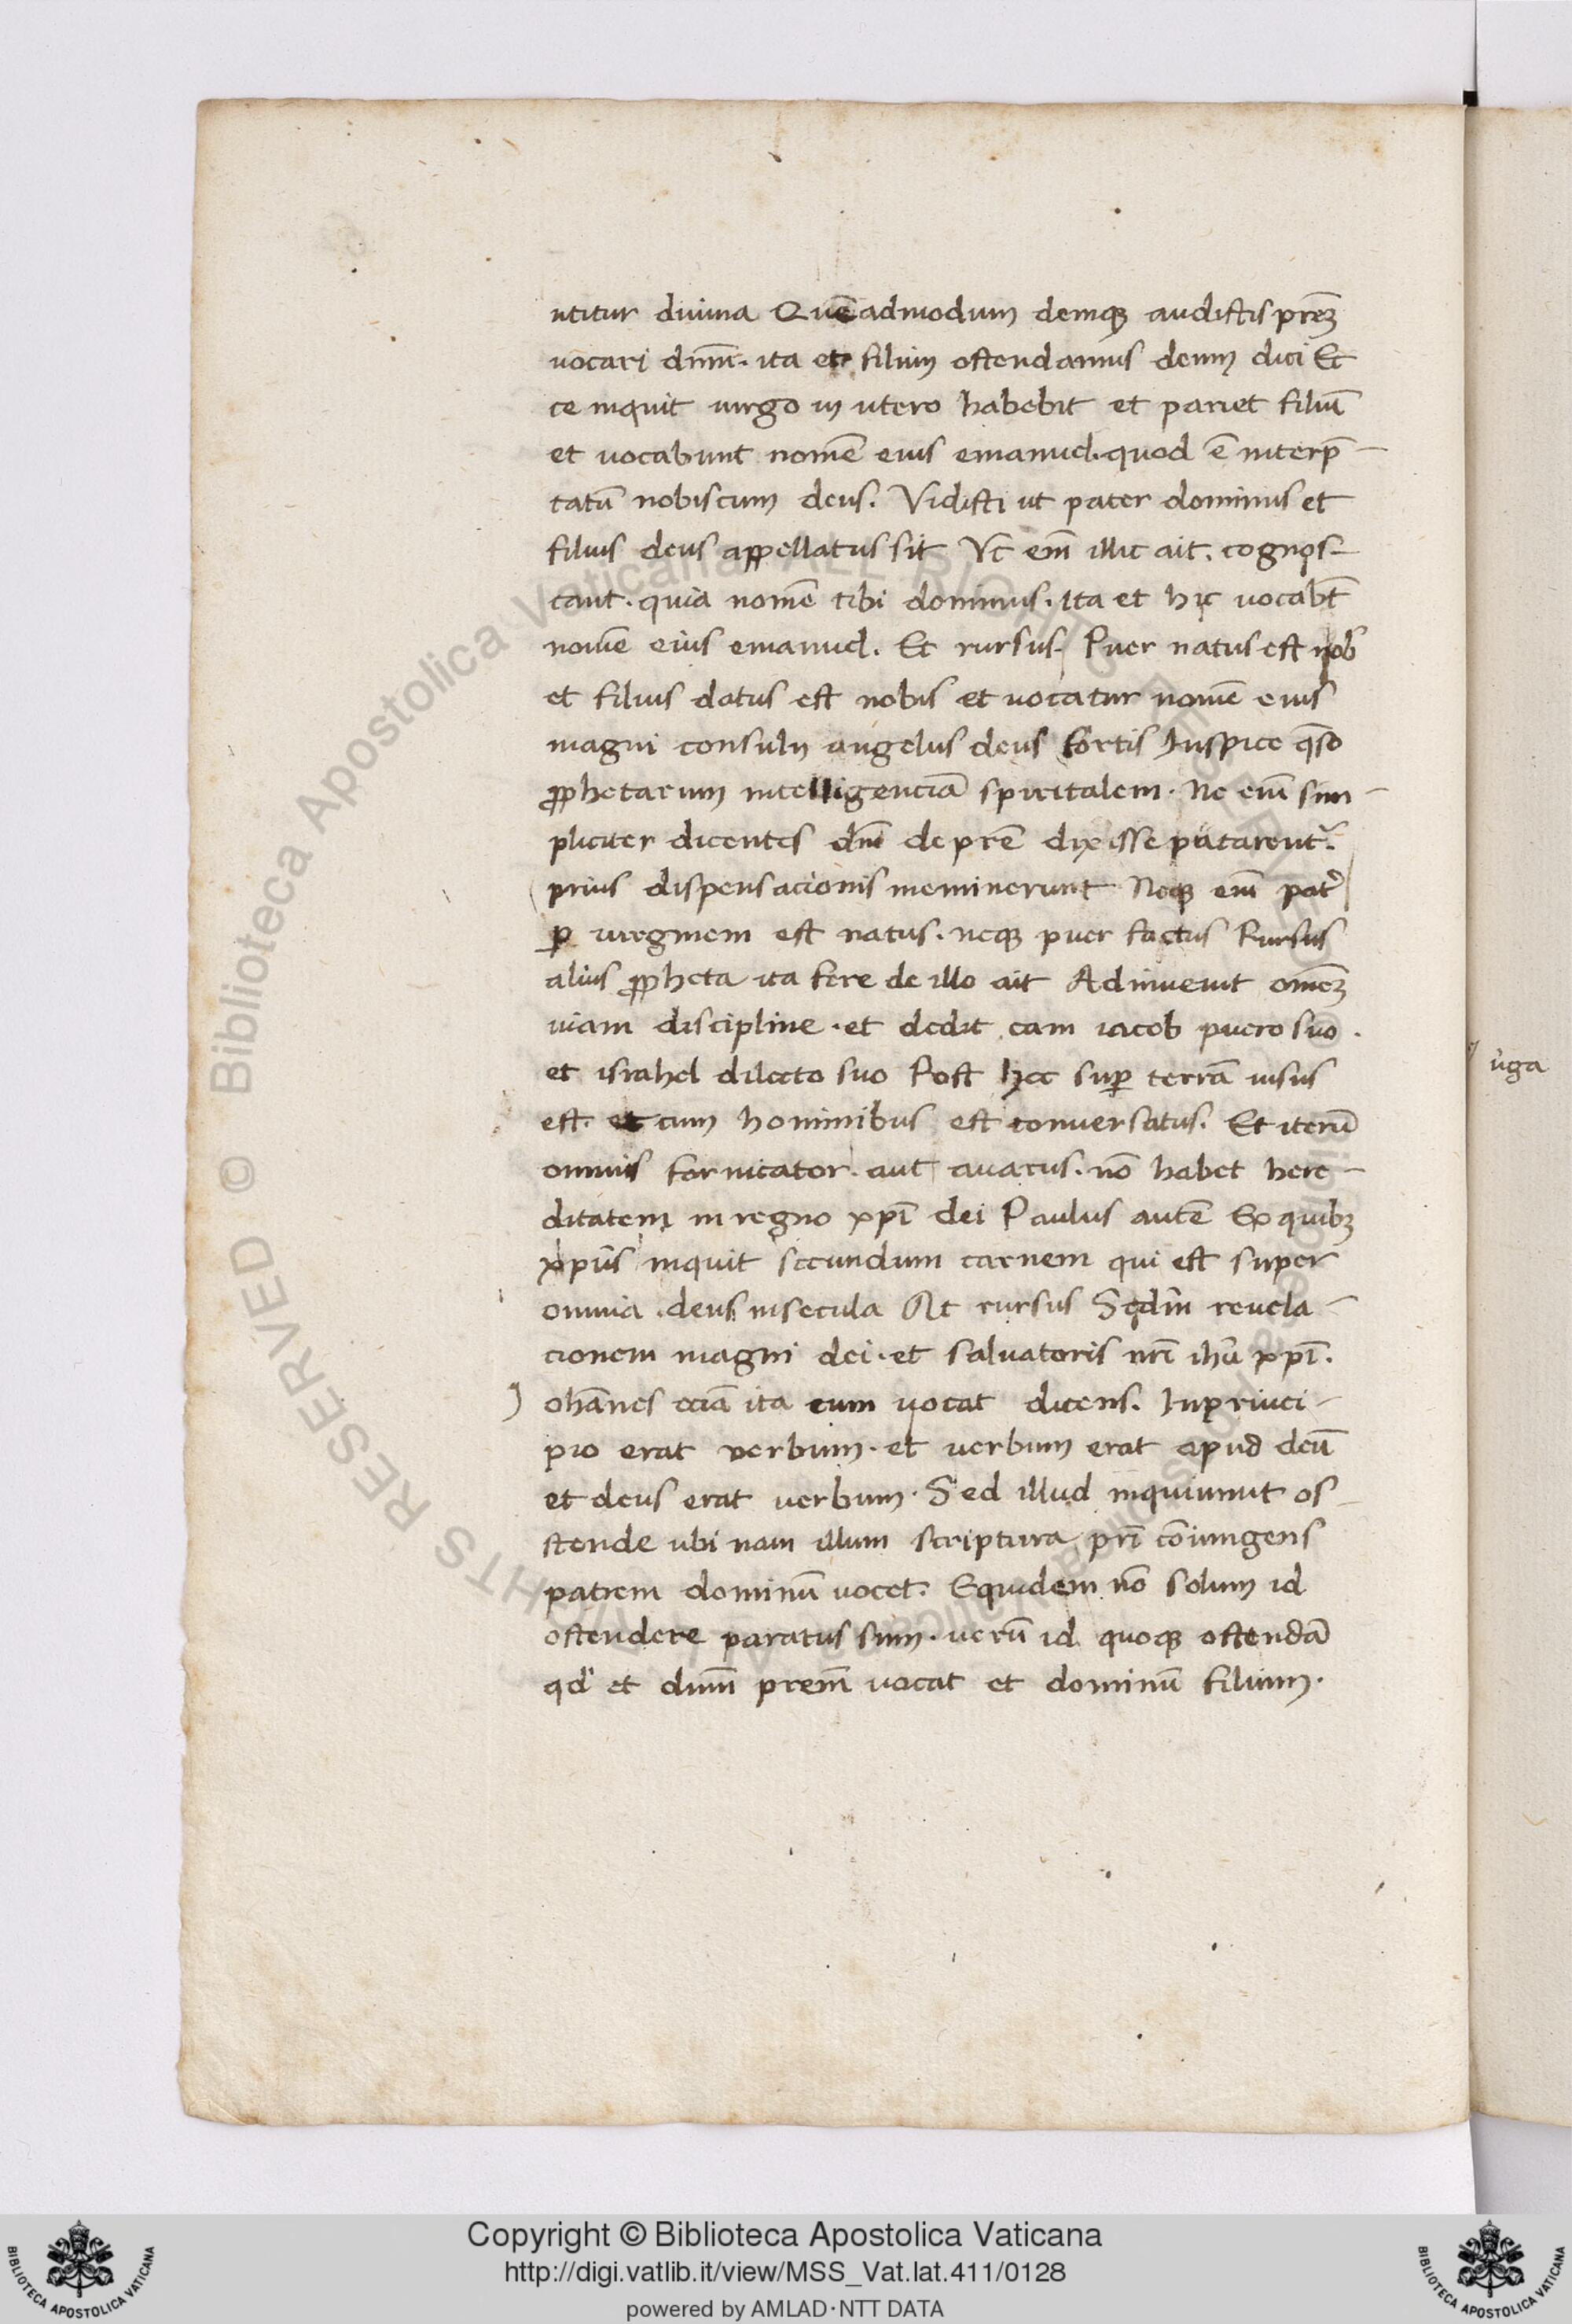 utitur diuina Quēadmodum deniqꝫ audistis prēꝫ
vocari dnm̄. ita et filium ostendamus deum dici Ec
ce inquit uirgo in utero habebit et pariet filiū
et vocabunt nomē eius emanuel. quod ē interp̄
tatū nobiscum deus. Vidisti ut pater dominus et
filius deus appellatus sit Vt em̄ illic ait. cognos
cant. quia nomē tibi dominus. ita et hic vocabt̄
nomē eius emanuel. Et rursus. Puer natus est nob
et filius datus est nobis et vocatur nomē eius
magni consulij angelus deus fortis Inspice q̄so
ꝓphetarum intelligenciā spiritalem. Ne eni̅ sim
pliciter dicentes dn̄m de prē dixisse putarent᷑
prius dispensacionis meminerunt Neqꝫ em̄ pat̉
ꝑ uirginem est natus. neqꝫ puer factus Rursus
alius ꝓpheta ita fere de illo ait Adinuenit omēꝫ
uiam discipline. et dedit eam iacob puero suo.
et israhel dilecto suo Post hec suꝑ terrā uisus
est. et cum hominibus est conuersatus. Et iterū
omnis fornicator. aut avarus. nō habet here
ditatem in regno xp̄i dei Paulus autē Ex quibꝫ
xp̄us inquit secundum carnem qui est super
omnia. deus in secula At rursus Sedm̄ reuela
cionem magni dei. et saluatoris nr̄i ihū xp̄i.
J ohānes eciā ita eum vocat dicens. In princi
pio erat verbum. et uerbum erat apud deū
et deus erat uerbum. Sed illud inquiunt os
tende ubi nam illum scriptura pr̄i cōiungens
patrem dominū vocet. Equidem nō solum id
ostendere paratus sum. uerū id quoqꝫ ostendā
qd̄ et dnm̄ prem̄ vocat et dominū filium.
ůga
Biblioteca Apostolica Vaticana ALL RIGHTS RESERVED ©
Copyright © Biblioteca Apostolica Vaticana
http://digi.vatlib.it/view/MSS_Vat.lat.411/0128
powered by AMLAD·NTT DATA
BIBLIOTECA APOSTOLICA VATICANA
BIBLIOTECA APOSTOLICA VATICANA